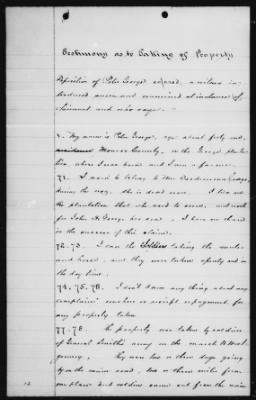 Testimony as to Taking of Property
Deposition of Peter George colored, a witness in-
troduced sworn and examined at instance of
claimant and who says. —
1. My name is Peter George, age about forty end,
Monroe County, on the George planta
tion, where I was born and I am a farmer.
71. I used to belong to Mrs George,
during the war, she is dead now. I live on
the plantation that she used to own, and work
for John H. George her son. I have no share
in the success of this claim.
72. 73. I saw the Soldiers taking the mules
and horse, and they were taken openly and in
the day time.
74. 75. 76. I don't know any thing about any
complaint voucher or receipt or payment for
any property taken
77. 78. The property was taken by soldiers
of General Smith's army on the march to Mont-
gomery. They were two or three days going
by on the main road, two or three miles from
our place but soldiers came out from the main